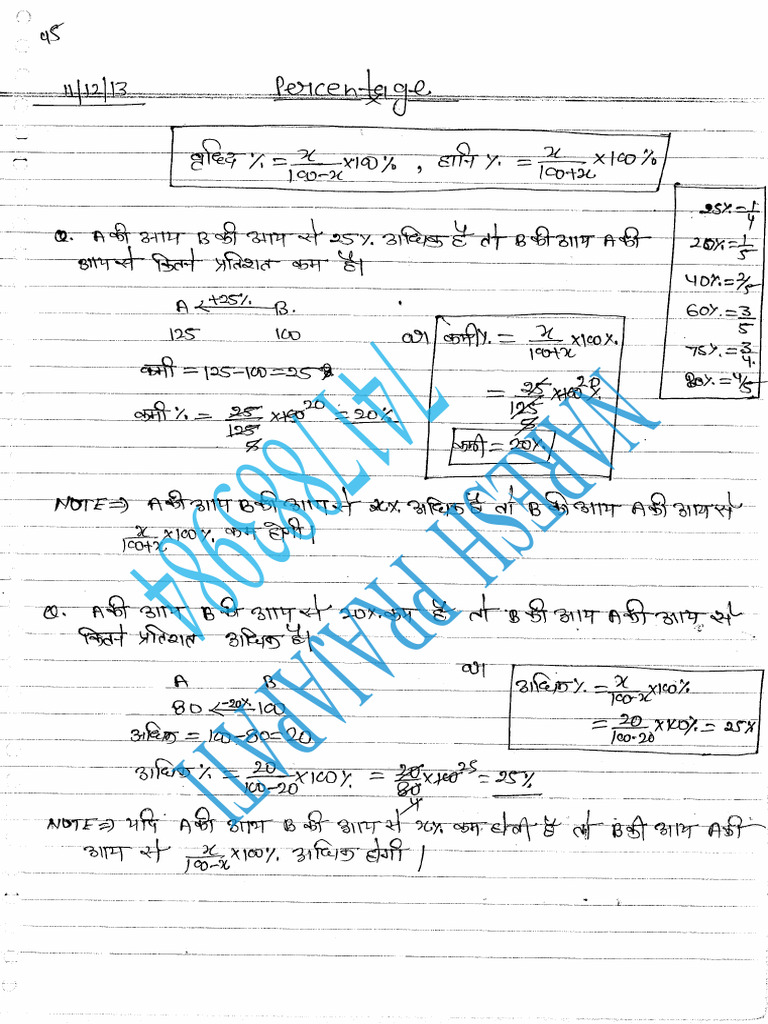 45
11/12/13 Percentage
वृद्धि % = x/100-x ×100% , हानि % = x/100+x ×100%
25% = 1/4
20% = 1/5
40% = 2/5
60% = 3/5
75% = 3/4
80% = 4/5
Q. A की आय B की आय से 25% अधिक है तो B की आय A की
आय से कितने प्रतिशत कम है।
A <+25% B.
125 100
कमी = 125-100 = 25
कमी % = 25/125 ×100 20 = 20%
5
या कमी % = x/100+x ×100%
= 25/125 ×100 20 %
5
कमी = 20%
NOTE ⇒ A की आय B की आय से x% अधिक है तो B की आय A की आय से
x/100+x ×100% कम होगी।
Q. A की आय B की आय से 20% कम है तो B की आय A की आय से
कितने प्रतिशत अधिक है।
A B
80 <-20% 100
अधिक = 100-80 = 20
अधिक % = 20/100-20 ×100% = 20/80 ×100 25 = 25%
4
या अधिक % = x/100-x ×100%
= 20/100-20 ×100% = 25%
NOTE ⇒ यदि A की आय B की आय से x% कम होती है तो B की आय A की
आय से x/100-x ×100% अधिक होगी।
NARESH PRAJAPATI
7417885984